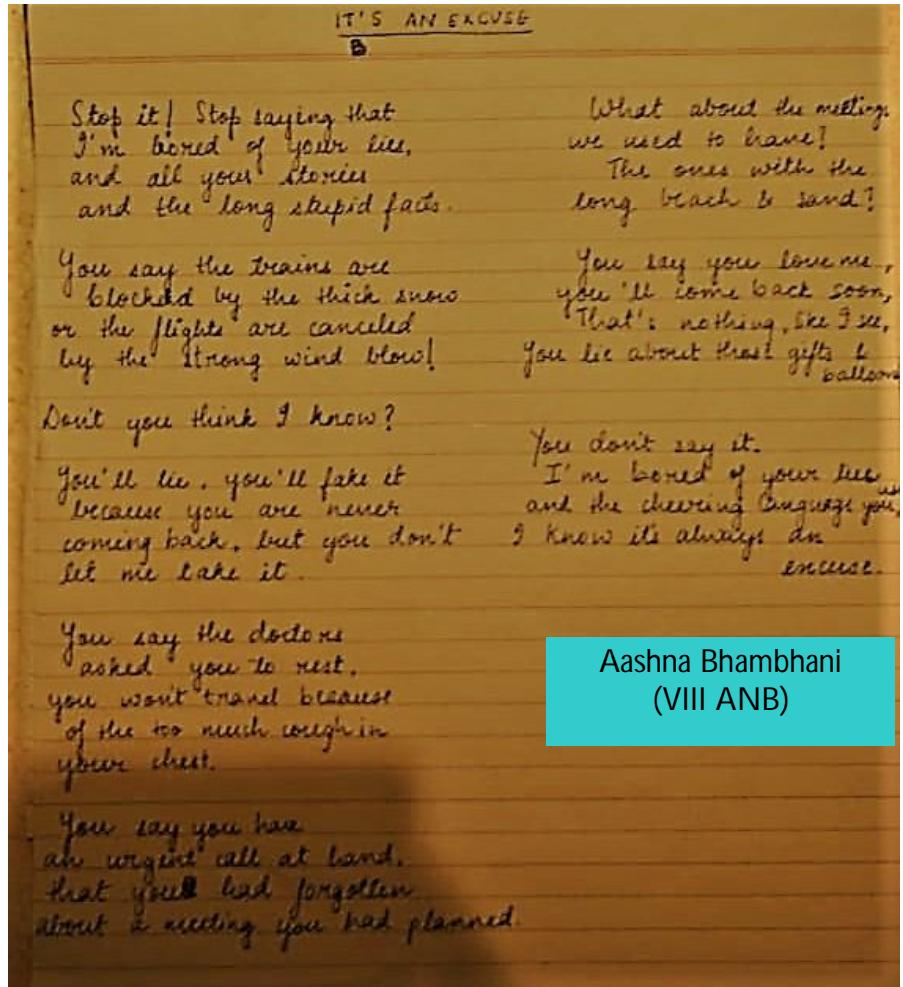 IT'S AN EXCUSE
B
Stop it! Stop saying that
I'm bored of your lies,
and all your stories
and the long stupid facts.
You say the trains are
blocked by the thick snow
or the flights are canceled
by the strong wind blow!
Don't you think I know?
You'll lie, you'll fake it
because you are never
coming back, but you don't
let me take it.
You say the doctors
asked you to rest,
you won't travel because
of the too much cough in
your chest.
You say you have
an urgent call at hand,
that you had forgotten
about a meeting you had planned.
What about the meetings
we used to have?
The ones with the
long beach & sand?
You say you love me,
you'll come back soon,
That's nothing, I see,
You lie about those gifts &
balloons
You don't say it.
I'm bored of your lies
and the cheering language you use
I know it's always an
excuse.
Aashna Bhambhani
(VIII ANB)